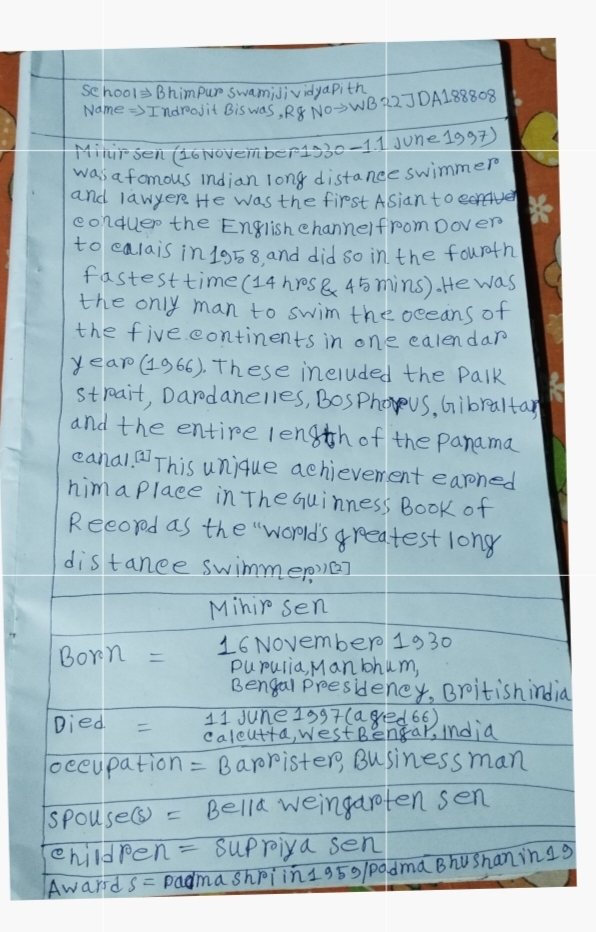 School⇒Bhimpur Swamiji Vidyapith
Name⇒Indrojit Biswas, Rg No⇒WB22JDA188808
Mihir sen (16 November 1930 - 11 June 1997)
was a fomous Indian long distance swimmer
and lawyer. He was the first Asian to conquer
conquer the English channel from Dover
to calais in 1958, and did so in the fourth
fastest time (14 hrs & 45 mins). He was
the only man to swim the oceans of
the five continents in one calendar
year (1966). These included the Palk
Strait, Dardanelles, Bosphorus, Gibraltar,
and the entire length of the Panama
canal.[1] This unique achievement earned
him a Place in The Guinness Book of
Record as the "world's greatest long
distance swimmer"[2]
Mihir sen
Born = 16 November 1930
Purulia, Manbhum,
Bengal Presidency, British india
Died = 11 June 1997 (aged 66)
calcutta, West Bengal, India
occupation = Barrister, Businessman
Spouse(s) = Bella Weingarten sen
children = Supriya sen
Awards = Padma Shri in 1959/Padma Bhushan in 19